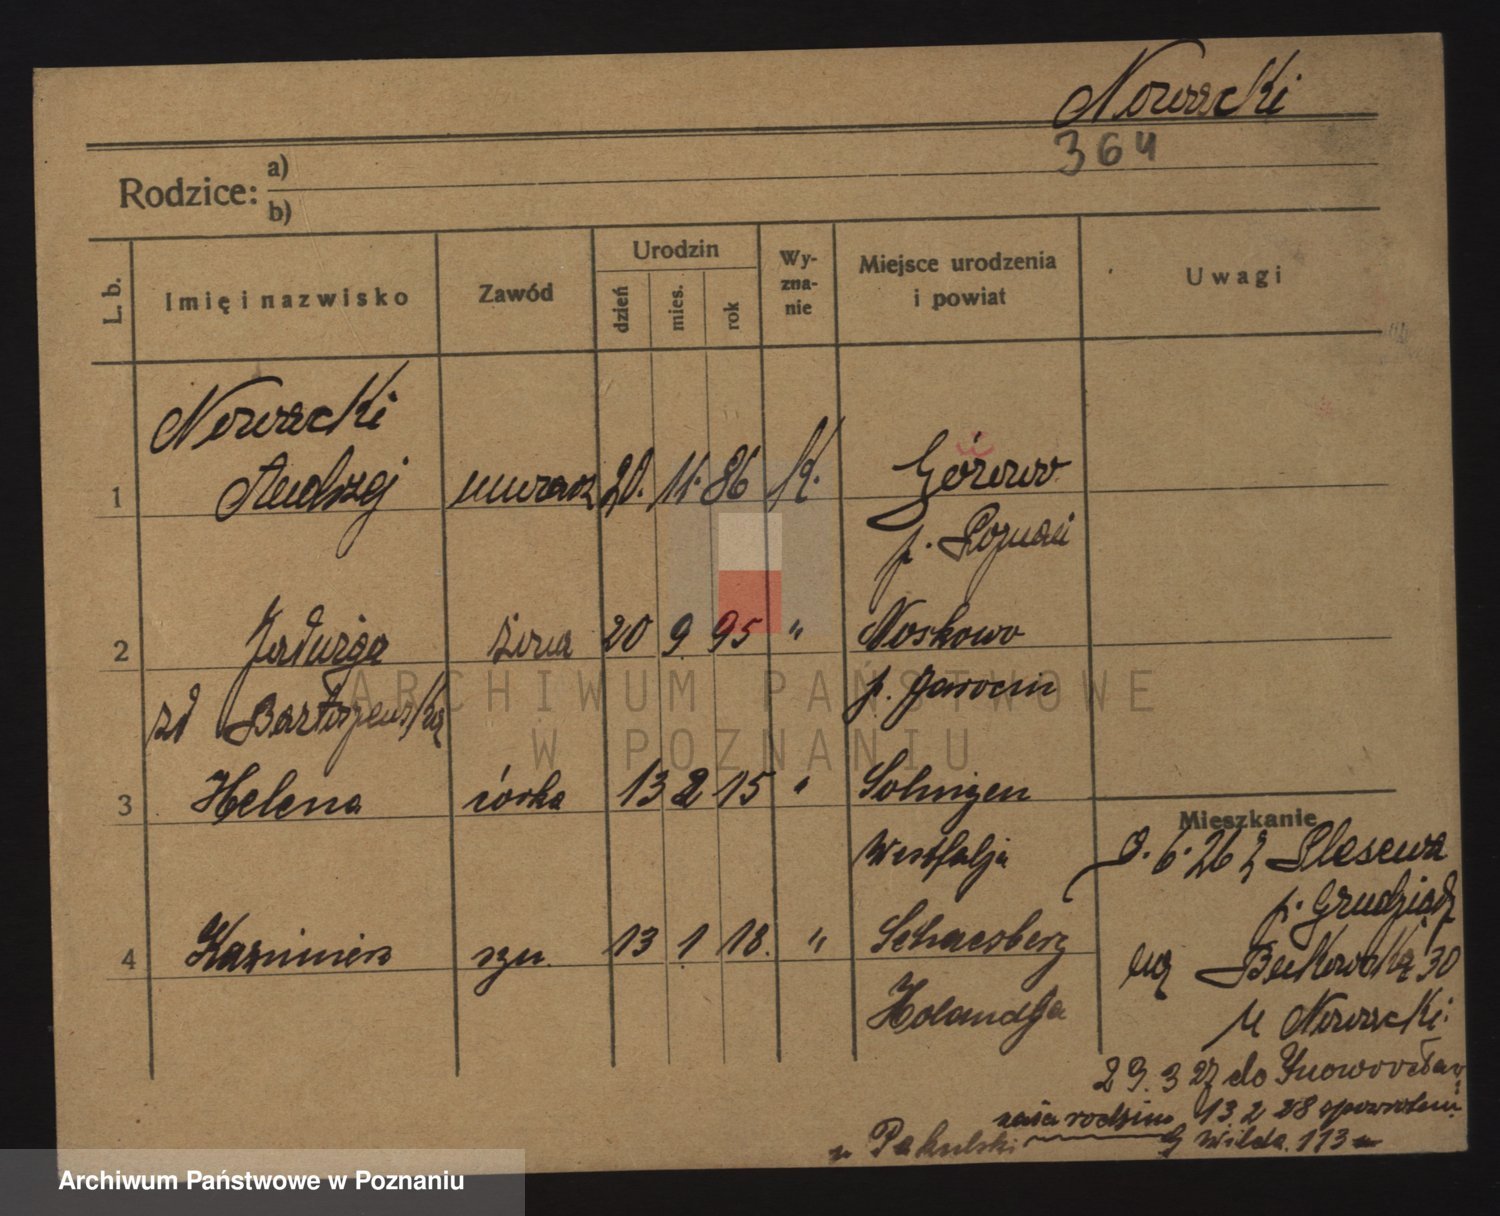 Nowacki
364
Rodzice: a)
b)
L. b.
Imię i nazwisko
Zawód
Urodzin
dzień
mies.
rok
Wy-
zna-
nie
Miejsce urodzenia
i powiat
Uwagi
Nowacki
1 Andrzej murarz 20. 11. 86 K. Górowo
p. Poznań
2 Jadwiga żona 20 9 95 " Noskowo
zd Bartoszewska p. Jarocin
3 Helena córka 13 2 15 " Solingen
Westfalja
4 Kazimierz syn. 13 1 18. " Schaesberg
Holandja
Mieszkanie
9. 6. 26 z Plesewa
p. Grudziądz
na Bukowska 30
u Nowacki.
29. 3 27 do Inowrocław
cała rodzina 13 2 28 spowrotem
u Pakulski G Wilda. 113
ARCHIWUM PAŃSTWOWE
W POZNANIU
Archiwum Państwowe w Poznaniu